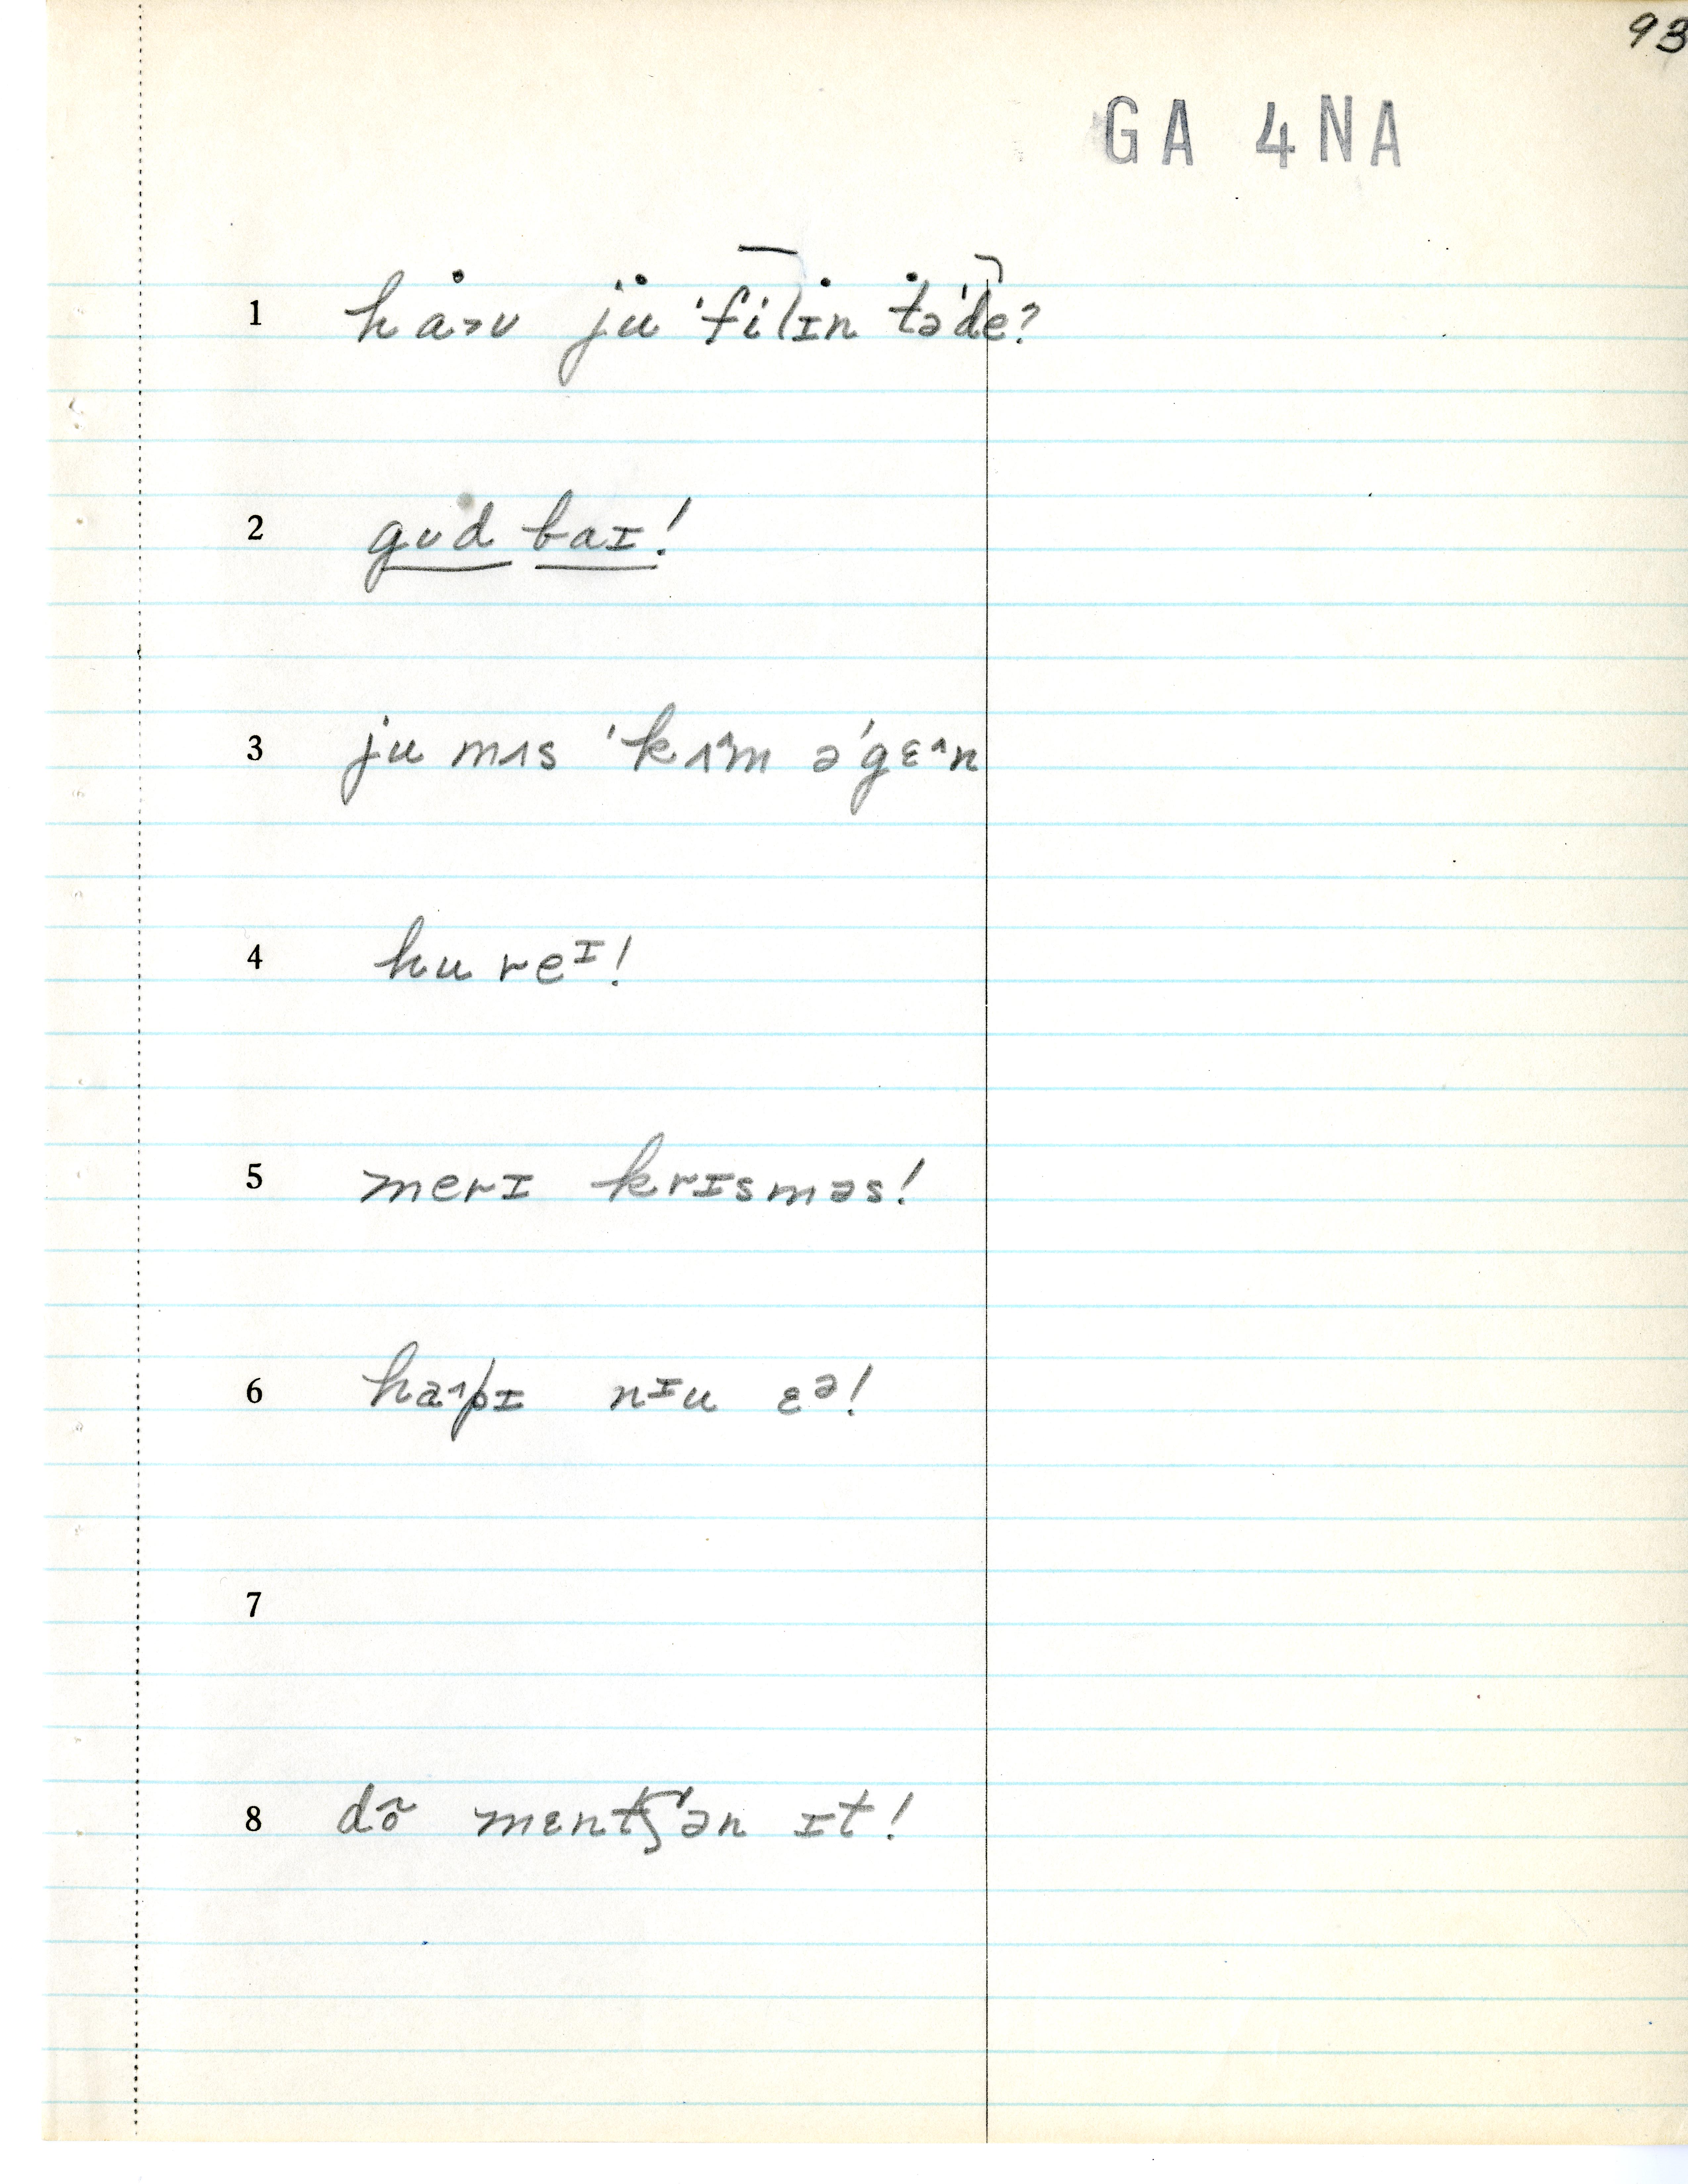 93
GA 4NA
1 ha>ʊ ju ˈfilɪn təˈde?
2 gʊd baɪ!
3 ju mʌs ˈkʌ^m əˈgɛ^n
4 hu reᶦ!
5 merɪ krɪsməs!
6 ha^pɪ nᶦu ɛᵊ!
7
8 dõ mɛntʃən ɪt!